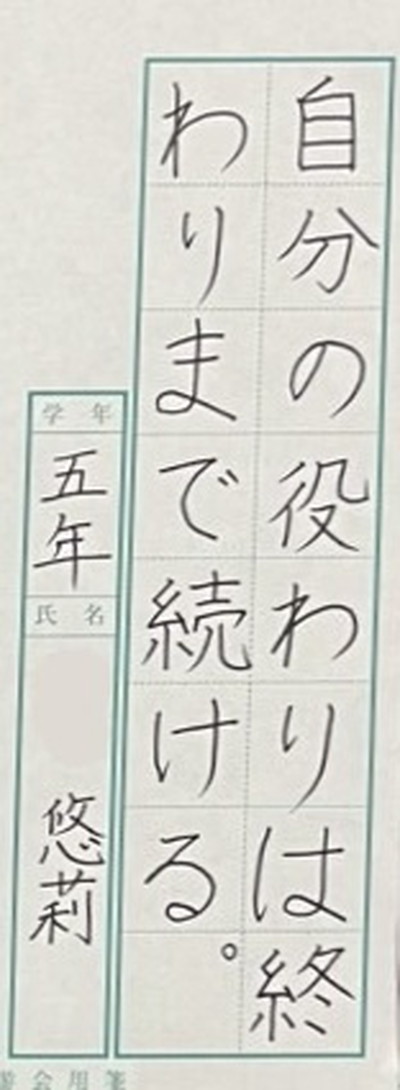 自分の役わりは終
わりまで続ける。
学年
五年
氏名
悠莉
会用箋